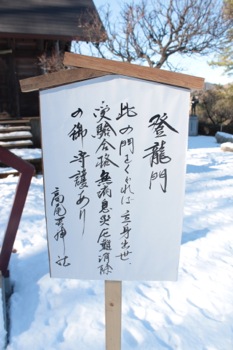 登龍門
此の門をくぐれば立身出世、
受験合格無病息災厄難消除
の御守護あり
高尾山神社